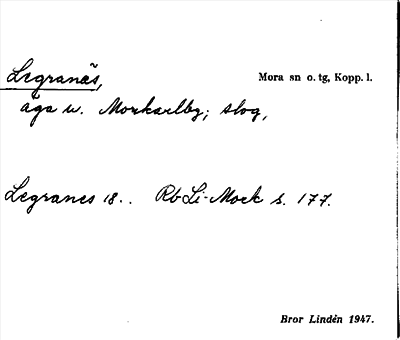 Legranäs,
Mora sn o. tg, Kopp. l.
äga u. Morkarlby; slog,
Legranes 18.. Rb Li-Mock s. 177.
Bror Lindén 1947.